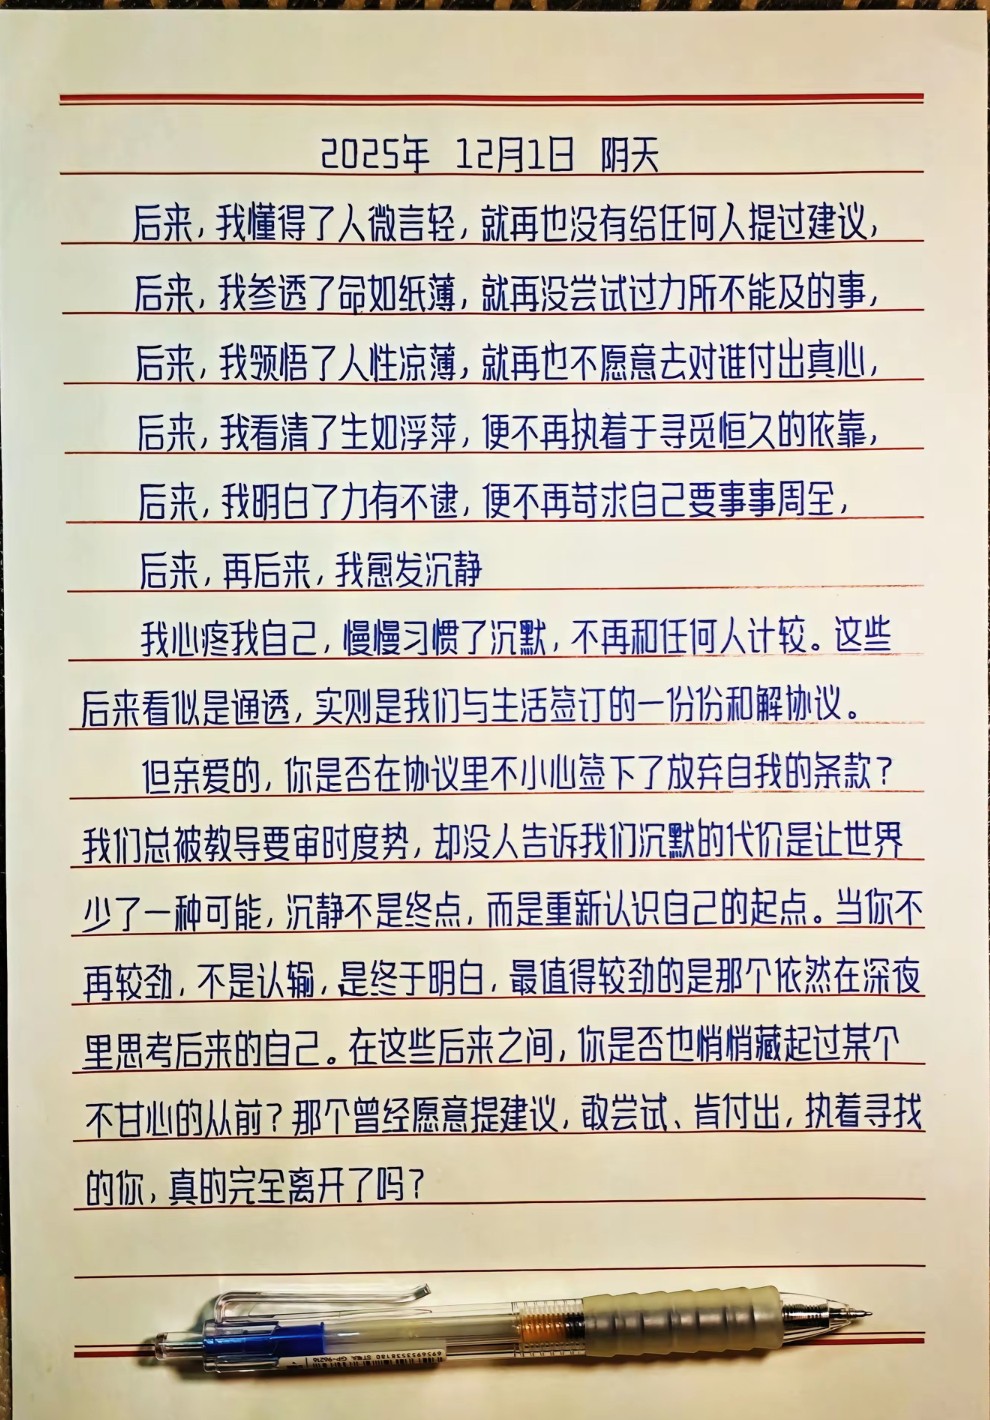 2025年 12月1日 阴天
后来,我懂得了人微言轻,就再也没有给任何人提过建议,
后来,我参透了命如纸薄,就再没尝试过力所不能及的事,
后来,我领悟了人性凉薄,就再也不愿意去对谁付出真心,
后来,我看清了生如浮萍,便不再执着于寻觅恒久的依靠,
后来,我明白了力有不逮,便不再苛求自己要事事周全,
后来,再后来,我愈发沉静
我心疼我自己,慢慢习惯了沉默,不再和任何人计较。这些
后来看似是通透,实则是我们与生活签订的一份份和解协议。
但亲爱的,你是否在协议里不小心签下了放弃自我的条款?
我们总被教导要审时度势,却没人告诉我们沉默的代价是让世界
少了一种可能,沉静不是终点,而是重新认识自己的起点。当你不
再较劲,不是认输,是终于明白,最值得较劲的是那个依然在深夜
里思考后来的自己。在这些后来之间,你是否也悄悄藏起过某个
不甘心的从前?那个曾经愿意提建议,敢尝试、肯付出,执着寻找
的你,真的完全离开了吗?
6936993538180 STWA GP-9626